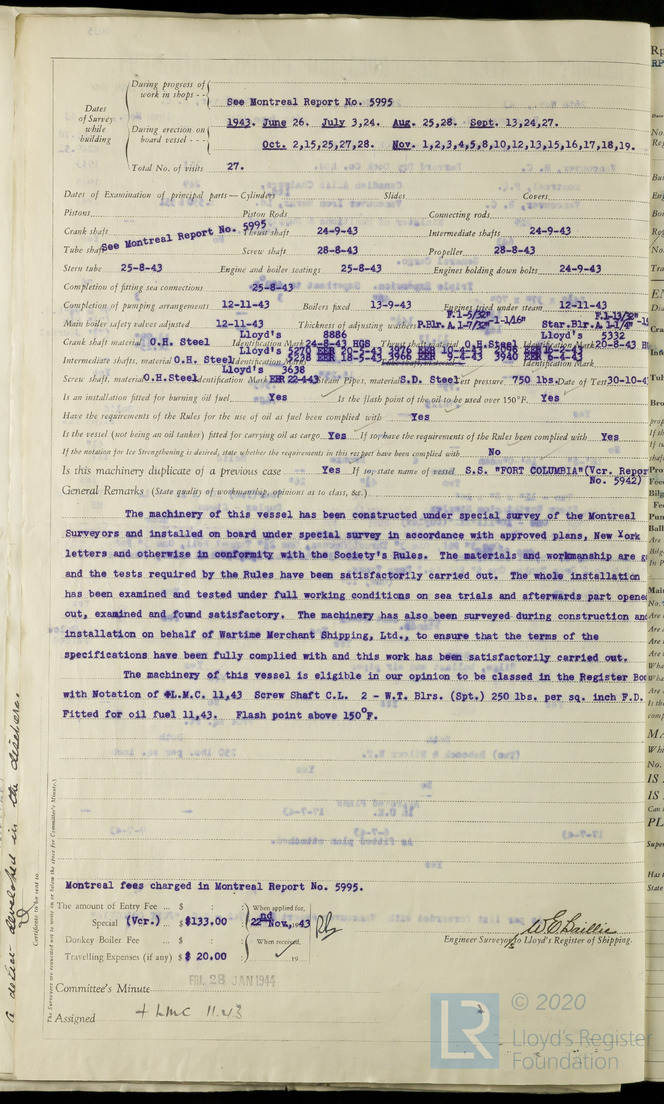 During progress of
work in shops - -
See Montreal Report No. 5995
Dates
of Survey
while
building
During erection on
board vessel - - -
1943. June 26. July 3,24. Aug. 25,28. Sept. 13,24,27.
Oct. 2,15,25,27,28. Nov. 1,2,3,4,5,8,10,12,13,15,16,17,18,19.
Total No. of visits 27.
Dates of Examination of principal parts—Cylinders Slides Covers
Pistons Piston Rods Connecting rods
Crank shaft Thrust shaft 24-9-43 Intermediate shafts 24-9-43
See Montreal Report No. 5995
Tube shaft Screw shaft 28-8-43 Propeller 28-8-43
Stern tube 25-8-43 Engine and boiler seatings 25-8-43 Engines holding down bolts 24-9-43
Completion of fitting sea connections 25-8-43
Completion of pumping arrangements 12-11-43 Boilers fixed 13-9-43 Engines tried under steam 12-11-43
Main boiler safety valves adjusted 12-11-43 Thickness of adjusting washers P.Blr. F.1-5/32" A.1-7/32" -1-1/16" Star.Blr. F.1-13/32" A.1-1/4"
Crank shaft material O.H. Steel Identification Mark Lloyd's 8886 24-8-43 HQS Thrust shaft material O.H.Steel Identification Mark Lloyd's 5332 20-8-43
Intermediate shafts, material O.H. Steel Identification Marks Lloyd's
Screw shaft, material O.H.Steel Identification Mark Lloyd's 3638 Steam Pipes, material S.D. Steel Test pressure 750 lbs. Date of Test 30-10-4
Is an installation fitted for burning oil fuel Yes Is the flash point of the oil to be used over 150°F. Yes
Have the requirements of the Rules for the use of oil as fuel been complied with Yes
Is the vessel (not being an oil tanker) fitted for carrying oil as cargo Yes If so, have the requirements of the Rules been complied with Yes
If the notation for Ice Strengthening is desired, state whether the requirements in this respect have been complied with No
Is this machinery duplicate of a previous case Yes If so, state name of vessel S.S. "FORT COLUMBIA" (Vcr. Repor
No. 5942)
General Remarks (State quality of workmanship, opinions as to class, &c.)
The machinery of this vessel has been constructed under special survey of the Montreal
Surveyors and installed on board under special survey in accordance with approved plans, New York
letters and otherwise in conformity with the Society's Rules. The materials and workmanship are g
and the tests required by the Rules have been satisfactorily carried out. The whole installation
has been examined and tested under full working conditions on sea trials and afterwards part opene
out, examined and found satisfactory. The machinery has also been surveyed during construction and
installation on behalf of Wartime Merchant Shipping, Ltd., to ensure that the terms of the
specifications have been fully complied with and this work has been satisfactorily carried out.
The machinery of this vessel is eligible in our opinion to be classed in the Register Boo
with Notation of +L.M.C. 11,43 Screw Shaft C.L. 2 - W.T. Blrs. (Spt.) 250 lbs. per sq. inch F.D.
Fitted for oil fuel 11,43. Flash point above 150°F.
a defect developed in the discharge.
Certificate to be sent to
(The Surveyors are requested not to write on or below the space for Committee's Minute.)
Montreal fees charged in Montreal Report No. 5995.
The amount of Entry Fee ... $ : :
Special (Vcr.) ... $ $133.00 :
Donkey Boiler Fee ... $ : :
Travelling Expenses (if any) $ $ 20.00 :
When applied for,
22nd Nov., 1943
When received,
19
W E Baillie
Engineer Surveyor to Lloyd's Register of Shipping.
Committee's Minute FRI. 28 JAN 1944
Assigned + LMC 11.43
© 2020
LR
Lloyd's Register
Foundation